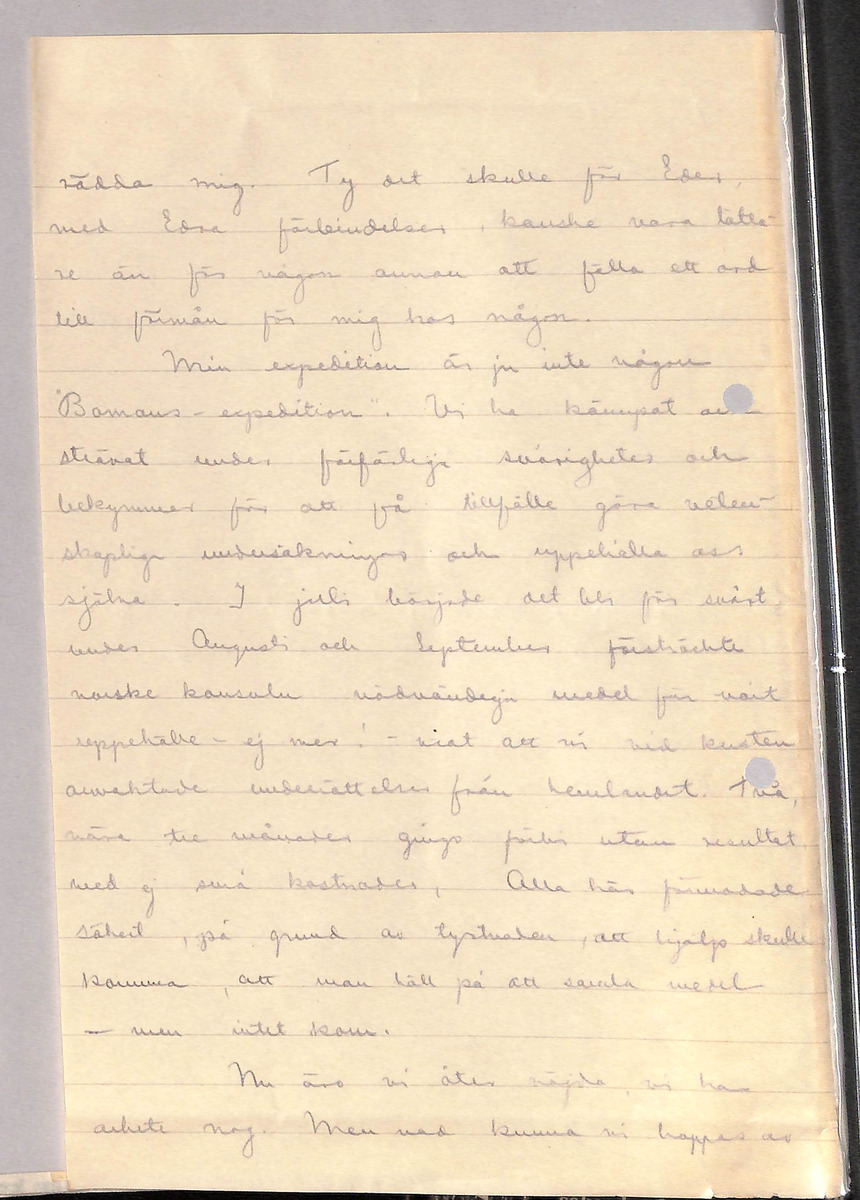 rädda mig. Ty det skulle för Eder,
med Edra förbindelser, kanske vara lätta-
re än för någon annan att fälla ett ord
till förmån för mig hos någon.
Min expedition är ju inte någon
"Bomans-expedition". Vi ha kämpat och
strävat under förfärliga svårigheter och
bekymmer för att få tillfälle göra veten-
skapliga undersökningar och uppehålla oss
själva. I juli började det bli för svårt,
under Augusti och September försträckte
norske konsuln nödvändiga medel för vårt
uppehälle - ej mer! - mot att vi vid kusten
avvaktade underrättelser från hemlandet. Två,
nära tre månader gingo förbi utan resultat
med ej små kostnader, Alla här förmodade
säkert, på grund av tystnaden, att hjälp skulle
komma, att man höll på att samla medel
- men intet kom.
Nu äro vi åter nöjda, vi ha
arbete nog. Men vad kunna vi hoppas av